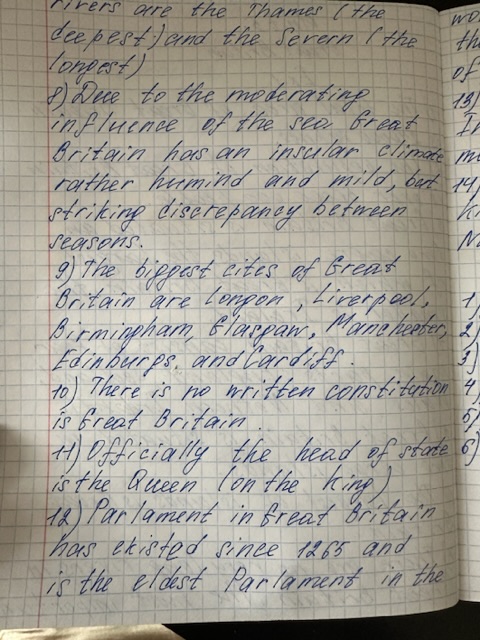 rivers are the Thames (the
deepest) and the Severn (the
longest)
8) Due to the moderating
influence of the sea Great
Britain has an insular climate
rather humind and mild, but
striking discrepancy between
seasons.
9) The biggest cites of Great
Britain are Longon, Liverpool,
Birmingham, Glasgaw, Manchester,
Edinburgs, and Cardiff.
10) There is no written constitution
is Great Britain.
11) Officially the head of state
is the Queen (on the King)
12) Parlament in Great Britain
has existed since 1265 and
is the eldest Parlament in the
wo
th
of
13)
In
m
14)
K
N
1)
2)
3)
4)
5)
6)